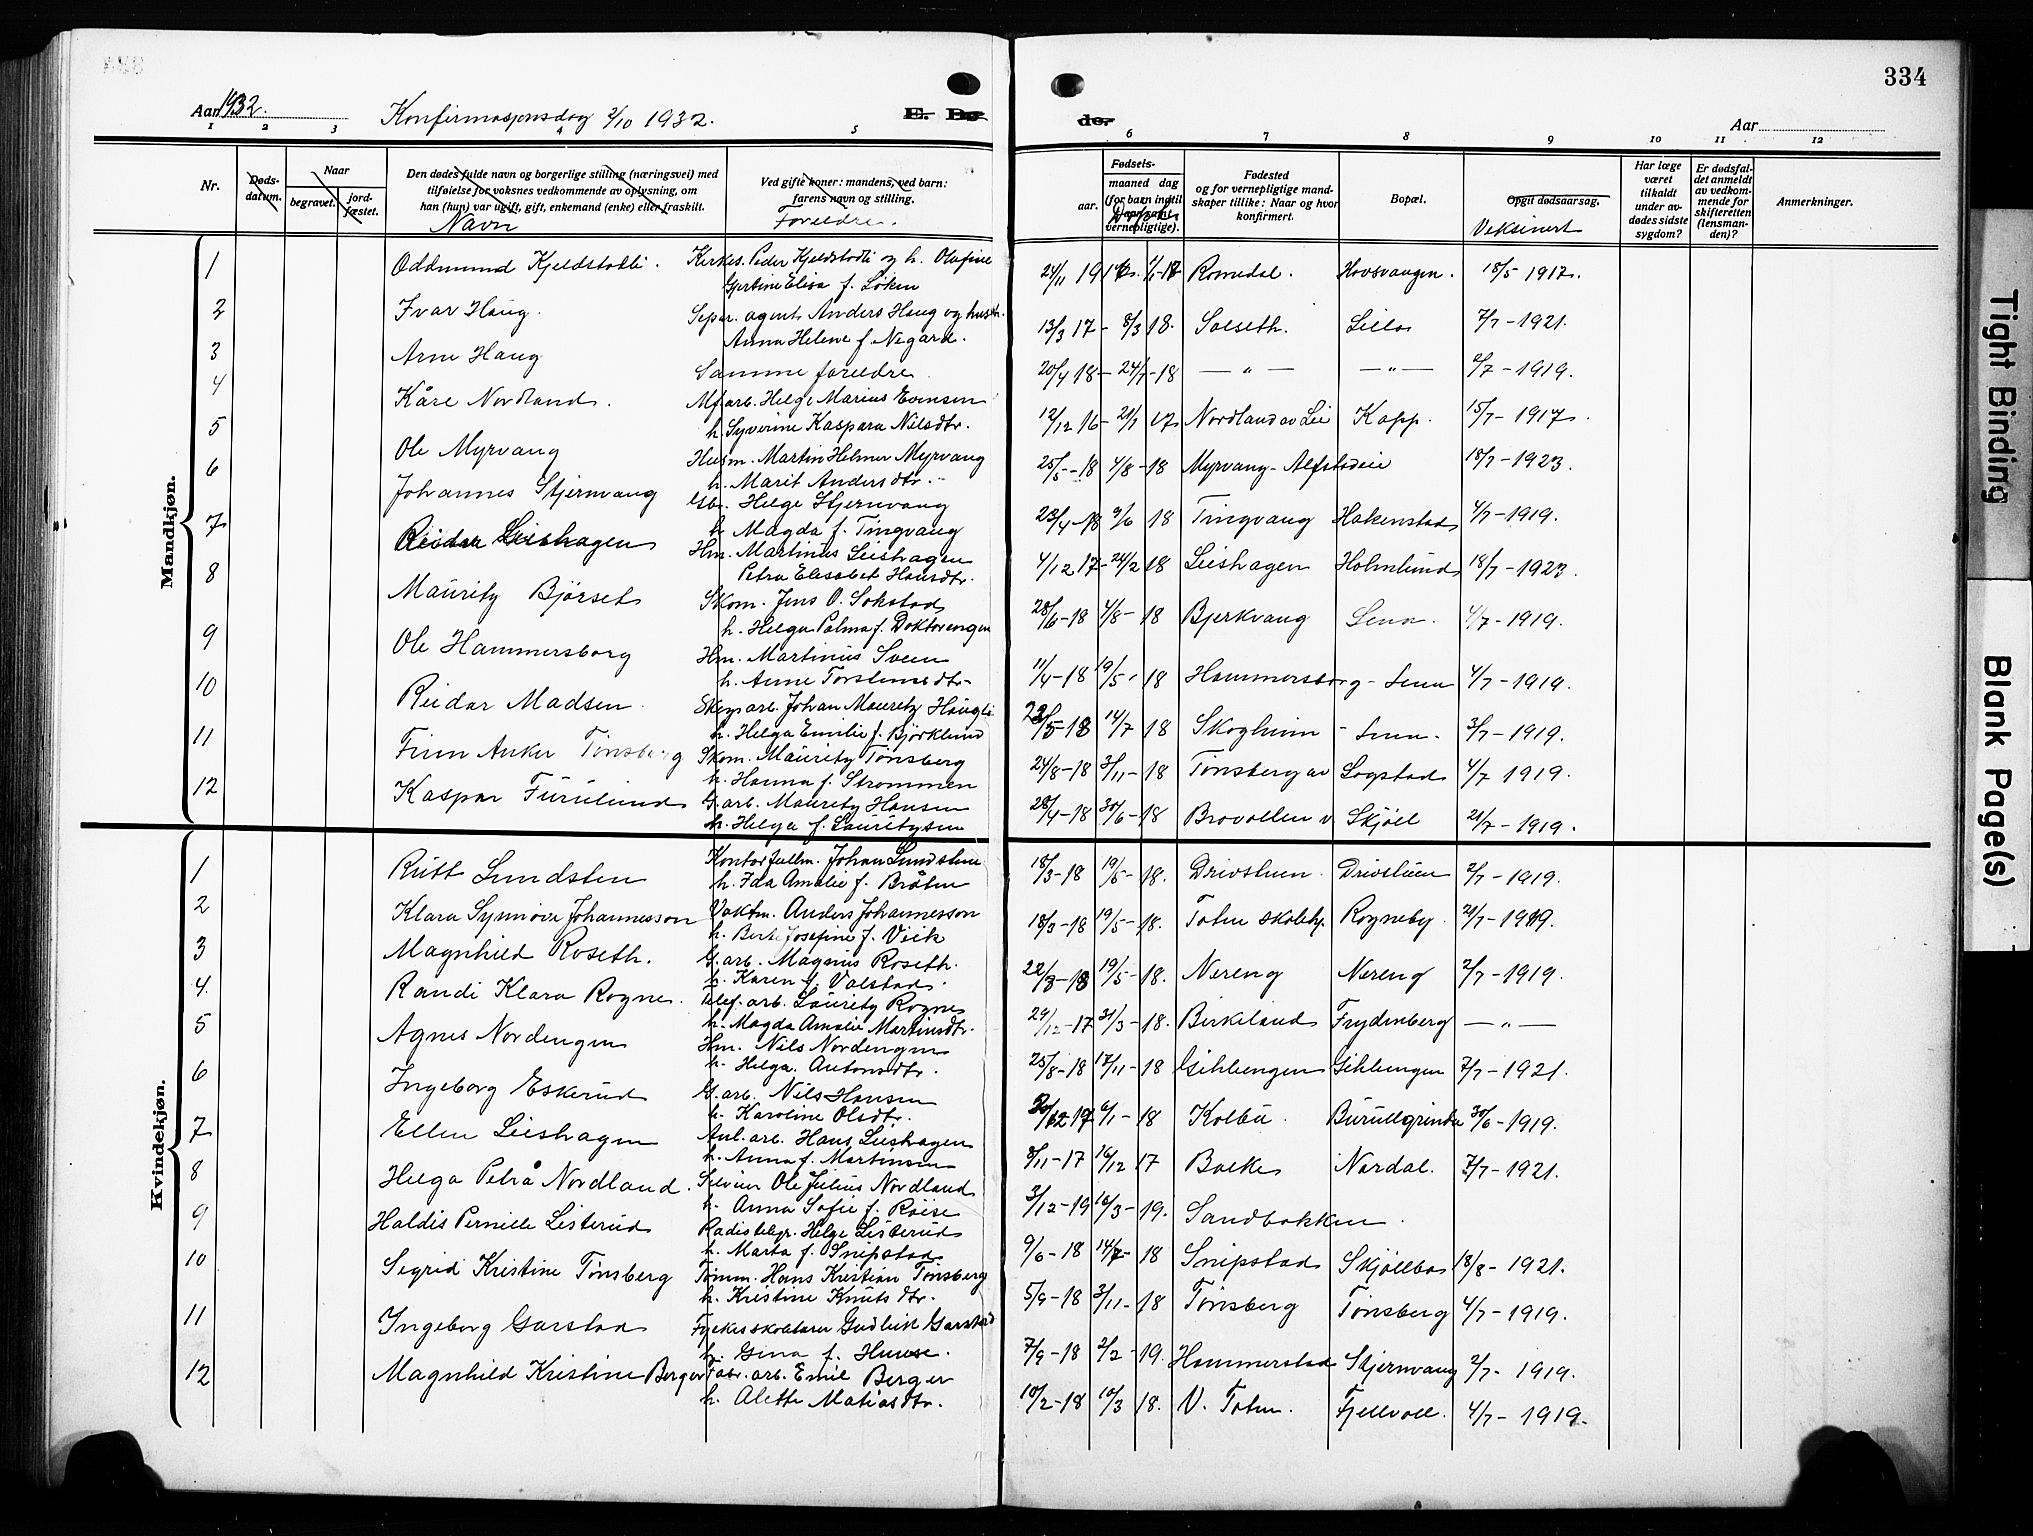 334
Aar 1932.
Konfirmasjonsdag 2/10 1932.
E. Dø
de.
Aar
1 2 3 4 5 6 7 8 9 10 11 12
Nr.
Døds-
datum.
Naar
begravet.
jord-
fæstet.
Den dødes fulde navn og borgerlige stilling (næringsvei) med
tilføielse for voksnes vedkommende av oplysning, om
han (hun) var ugift, gift, enkemand (enke) eller fraskilt.
Navn
Ved gifte koner: mandens, ved barn:
farens navn og stilling.
Foreldre.
Fødsels-
aar.
maaned dag
(for barn indtil
vernepligtige).
Fødested
og for vernepligtige mand-
skaper tillike: Naar og hvor
konfirmert.
Bopæl.
Opgit dødsaarsag.
Veksinert
Har læge
været
tilkaldt
under av-
dødes sidste
sygdom?
Er dødsfal-
det anmeldt
av vedkom-
mende for
skifteretten
(lensman-
den)?
Anmerkninger.
Mandkjøn.
1 Oddmund Kjeldstadli. Kirkes. Peder Kjeldstadli og h. Olufine 24/11 19 Romedal. Hovsvangen. 18/5 1917.
Gjertine Elisa f. Løken
2 Ivar Haug. Separ. agent Anders Haug og hustr. 13/3 17 - 8/3 18. Solseth. Lillo 7/7 - 1921.
Anna Helene f. Negard.
3 Arne Haug Samme foreldre 20/4 18 - 24/7 - 18 — " — — " — 2/7 - 1919.
4 Kåre Nordland. arb. Helge Marius Evensen 12/12 16 - 21/1 17 Nordland av Lei Kapp. 15/7 - 1917.
h. Syverine Kaspara Nilsdtr.
5 Ole Myrvang Husm. Martin Helmer Myrvang 25/5 - 18 4/8 - 18 Myrvang - Alfstadeie 18/7 - 1923.
h. Marit Andersdtr.
6 Johannes Stjernvang Gbr. Helge Stjernvang 23/4 - 18 9/6 18 Tingvang Hakenstad 4/7 - 1919.
h. Magda f. Tingvang
7 Reidar Leishagen Hm. Martinus Leishagen 4/12 17 - 24/2 18 Leishagen Holmlund 18/7 - 1923.
Petra Elisabet Hansdtr.
8 Mauritz Bjørset Skom. Jens O. Sokstad 28/6 - 18 4/8 - 18 Bjerkvang Lena. 4/7 - 1919.
h. Helga Palma f. Doktorengen
9 Ole Hammersborg Hm. Martinius Sveen 11/4 - 18 19/5 - 18 Hammersborg - Lena 4/7 - 1919.
h. Anne Torstensdtr.
10 Reidar Madsen. arb. Johan Mauritz Haugli 23/5 - 18 14/7 18 Skogheim - Lena. 3/7 - 1919.
h. Helga Emilie f. Bjørklund
11 Finn Anker Tønsberg Skom. Mauritz Tønsberg 24/8 - 18 3/11 - 18 Tønsberg av Sogstad 4/7 1919.
h. Hanna f. Strømmen
12 Kaspar Furulund G. arb. Mauritz Hansen 28/4 - 18 30/6 - 18 Brovollen v Skjøll 21/7 - 1919.
h. Helga f. Lauritzsen
Kvindekjøn.
1 Rutt Lundsten Kontorfullm. Johan Lundsten 18/3 - 18 19/5 - 18. Drivstuen. Drivstuen 2/7 - 1919.
h. Ida Amalie f. Bråten
2 Klara Synnøve Johannesson Vaktm. Anders Johannesson 18/3 - 18 19/5 - 18. Toten skoleby. Rogneby. 21/7 - 1919.
h. Berte Josefine f. Veik
3 Magnhild Roseth. G. arb. Magnus Roseth. 22/3 - 18 19/5 - 18. Nereng Nereng 2/7 - 1919.
h. Karen f. Valstad.
4. Randi Klara Rognes. Telef. arb. Lauritz Rognes 29/12 - 17 31/3 - 18. Birkeland Frydenberg — " —
h. Magda Amalie Martinsdtr.
5 Agnes Nordengen Hm. Nils Nordengen 25/8 - 18 17/11 - 18 Gihlengen Gihlengen 7/7 - 1921.
h. Helga Antonsdtr.
6 Ingeborg Eskerud G. arb. Nils Hansen 30/12 17 6/1 - 18 Kolbu. 30/6 - 1919.
h. Karoline Olsdtr.
7 Ellen Leishagen Anl. arb. Hans Leishagen 8/11 - 17 16/12 17 Balke Nordal. 7/7 - 1921.
h. Anna f. Martinsen
8 Helga Petra Nordland. Ole Julius Nordland 3/12 - 19 16/3 - 19. Sandbakken.
h. Anna Sofie f. Røise
9 Haldis Pernille Listerud Radiotelegr. Helge Listerud 9/6 - 18 14/7 - 18 Snipstad Skjøllbo 18/8 - 1921.
h. Marta f. Snipstad
10 Sigrid Kristine Tønsberg Tømm. Hans Kristian Tønsberg 5/9 - 18 3/11 - 18 Tønsberg Tønsberg 4/7 - 1919.
h. Kristine Knutsdtr.
11 Ingeborg Garstad Fylkesskolelærer Gudleik Garstad 7/9 - 18 2/2 - 19. Hammerstad Stjernvang 2/7 - 1919.
h. Gina f. Huuse.
12 Magnhild Kristine Berger Fabr. arb. Emil Berger 10/2 - 18 10/3 18. V. Toten. Fjellvoll. 4/7 - 1919.
h. Alette Matiasdtr.
Tight Binding
Blank Page(s)